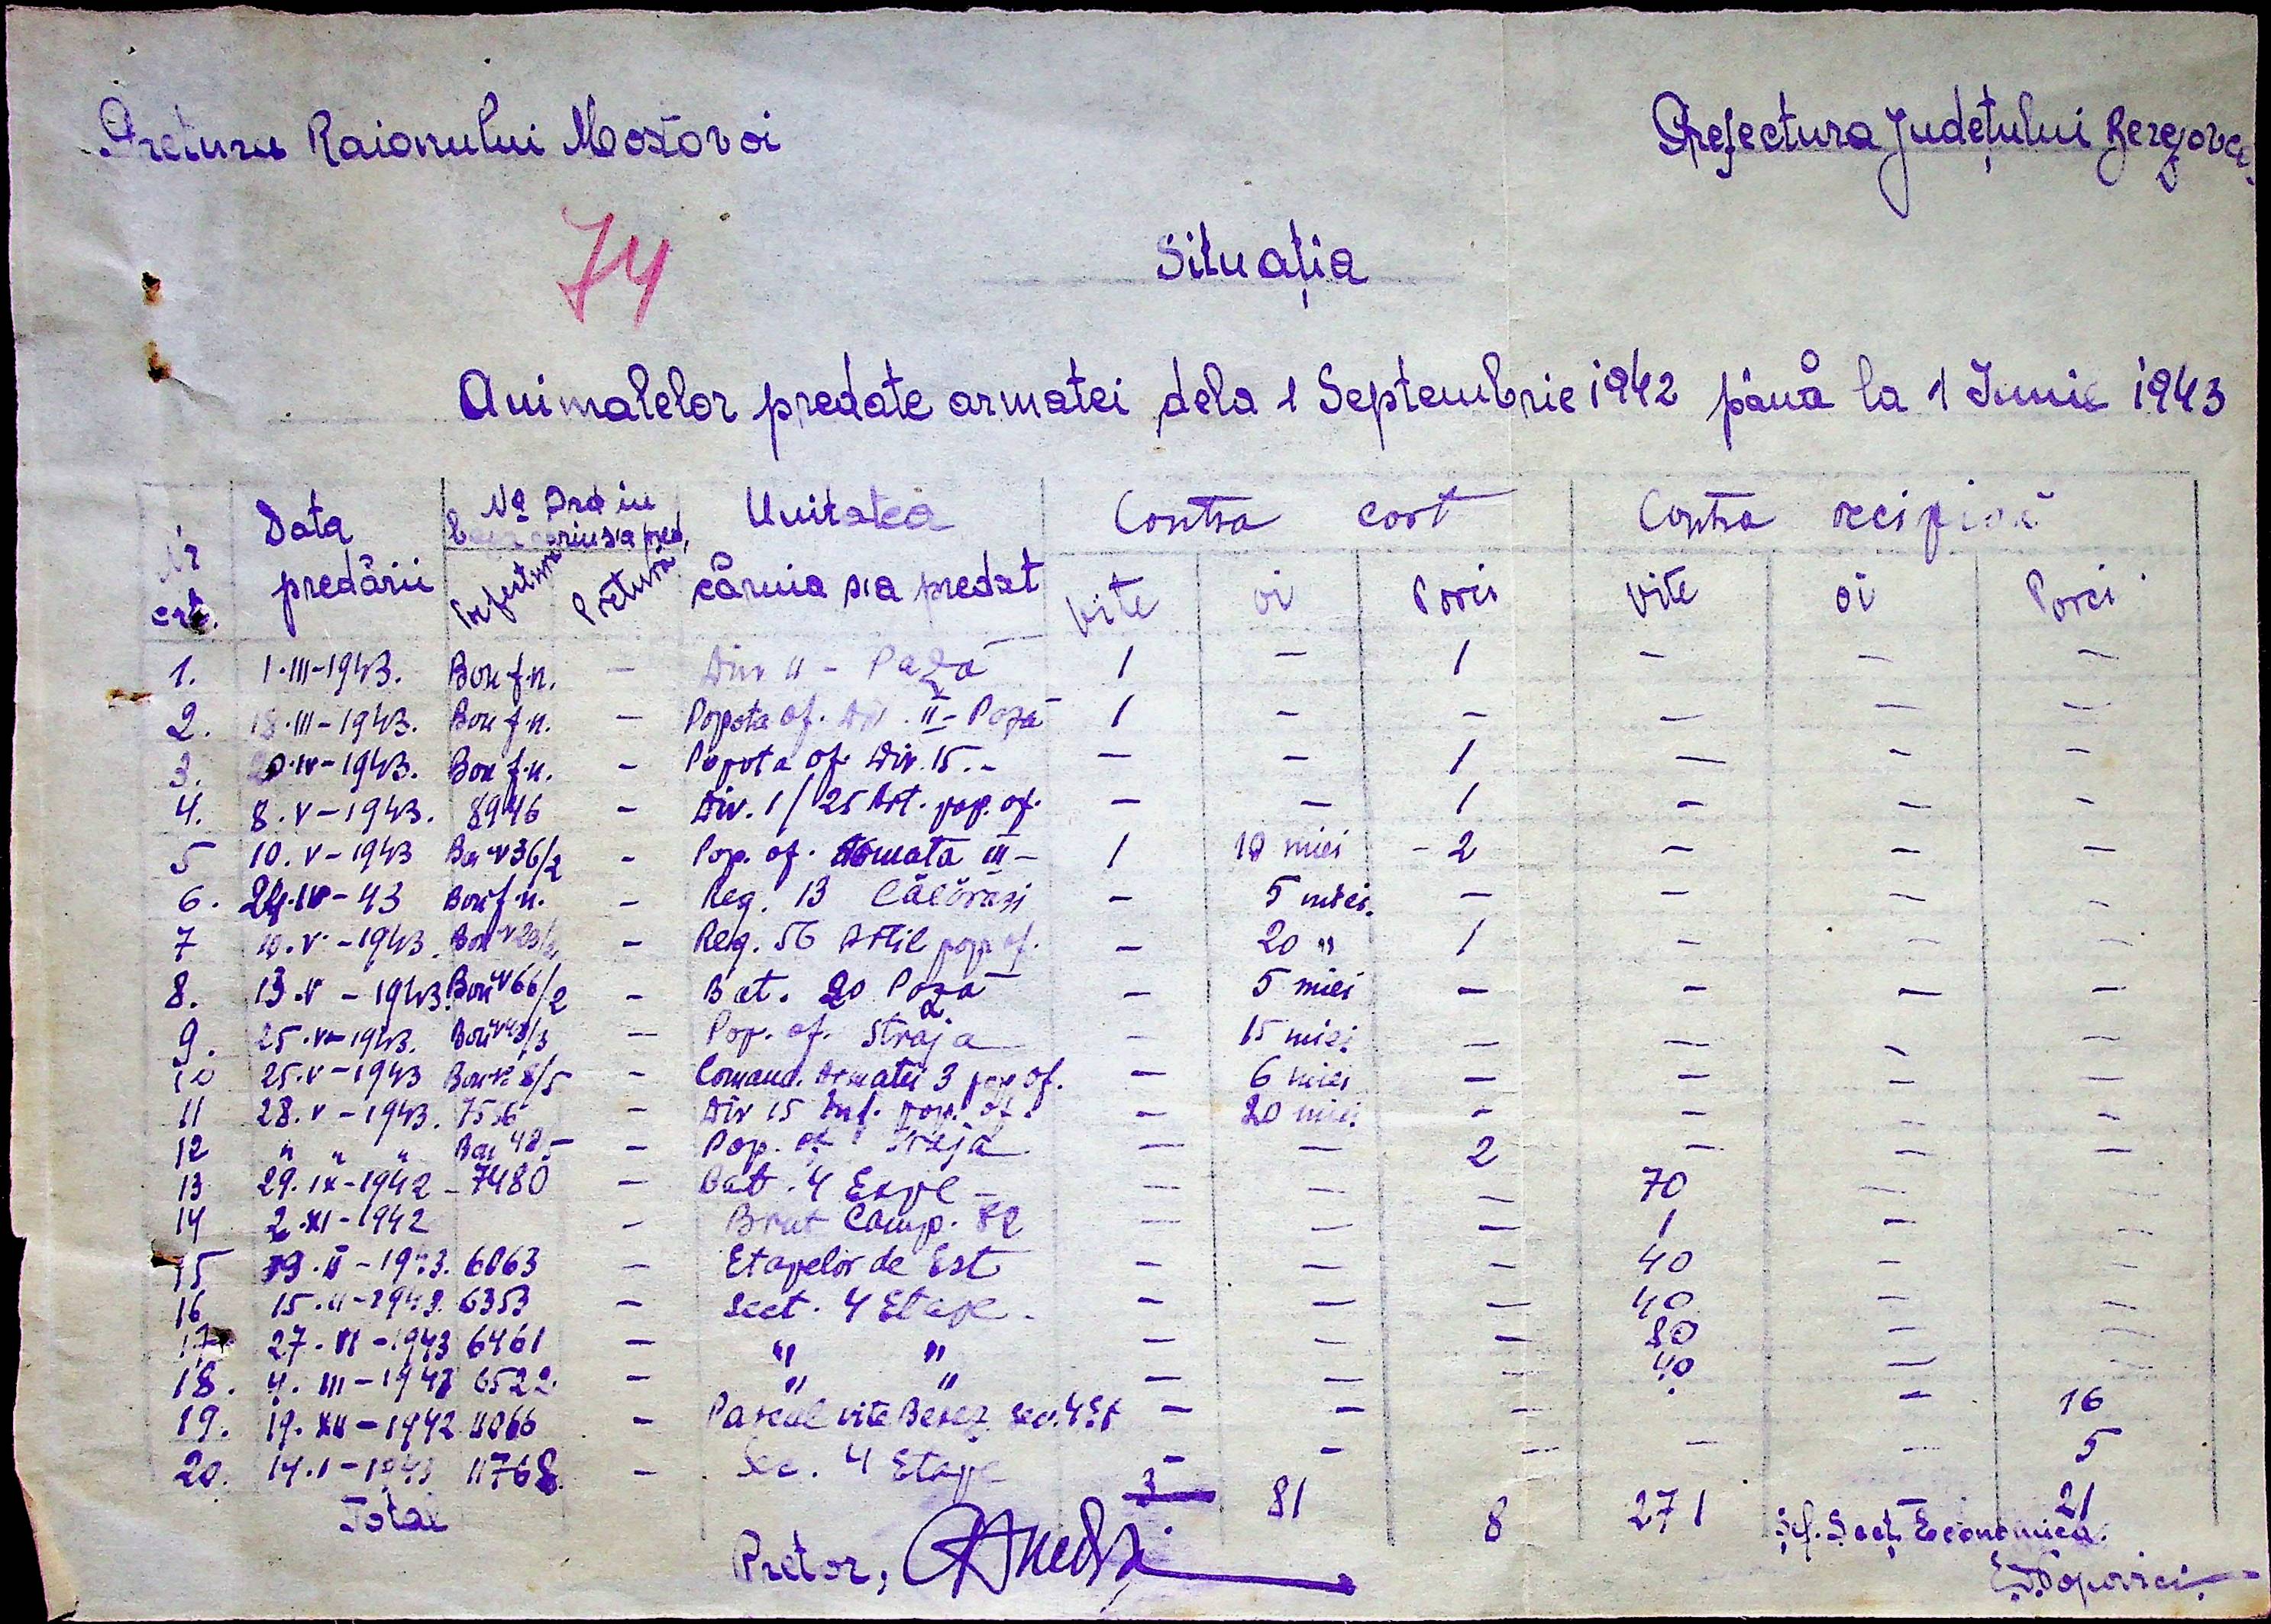 Pretura Raionului Mostovoi
Prefectura Județului Berezovca
74
Situația
Animalelor predate armatei dela 1 Septembrie 1942 până la 1 Iunie 1943
Nr crt. | Data predării | No Ordin pred. | Unitatea căruia s'a predat | Contra cost | Contra recipisă
Prefectura | Pretura | vite | oi | Porci | vite | oi | Porci
1. 1.III-1943. Bon f.n. — Div II - Pază 1 — 1 — — —
2. 18.III-1943. Bon f.n. — Popota of. Div. II - Pază 1 — — — — —
3. 20.IV-1943. Bon f.n. — Popota of. Div. 15.- — — 1 — — —
4. 8.V-1943. 8946 — Div. 1/25 Art. pop. of. — — 1 — — —
5 10.V-1943 Bon 36/2 — Pop. of. Armata III — 1 10 miei - 2 — — —
6. 24.IV-43 Bon f.n. — Reg. 13 Călărași — 5 miei. — — — —
7 10.V-1943. Bon — Reg. 56 Artil pop. of. — 20 " 1 — — —
8. 13.V-1943. Bon 66/2 — Bat. 20 Pază — 5 miei — — — —
9. 25.V-1943. Bon — Pop. of. Straja — 15 miei — — — —
10 25.V-1943 Bon 8/5 — Comand. Armatei 3 pop of. — 6 miei — — — —
11 28.V-1943. 7556 — Div 15 Inf. pop. of. — 20 miei. — — — —
12 " " " Bon — Pop. of Straja — — 2 — — —
13 29.IX-1942 - 7480 — Bat. 4 — — — 70 — —
14 2.XI-1942 — Camp. 82 — — — 1 — —
15 .II-1943. 6063 — Etapelor de Est — — — 40 — —
16 15.II-1943. 6353 — Sect. 4 Etape — — — 40 — —
17 27.II-1943 6461 — " " — — — 80 — —
18. 4.III-1943 6522 — " " — — — 40 — —
19. 19.XII-1942 11066 — Parcul vite Berez. Sec. 4 Et — — — — 16
20. 14.I-1943 11768. — Sec. 4 Etape — — — — — 5
Total 3 81 8 271 21
Pretor,
Șef. Secț. Economică.
Popovici